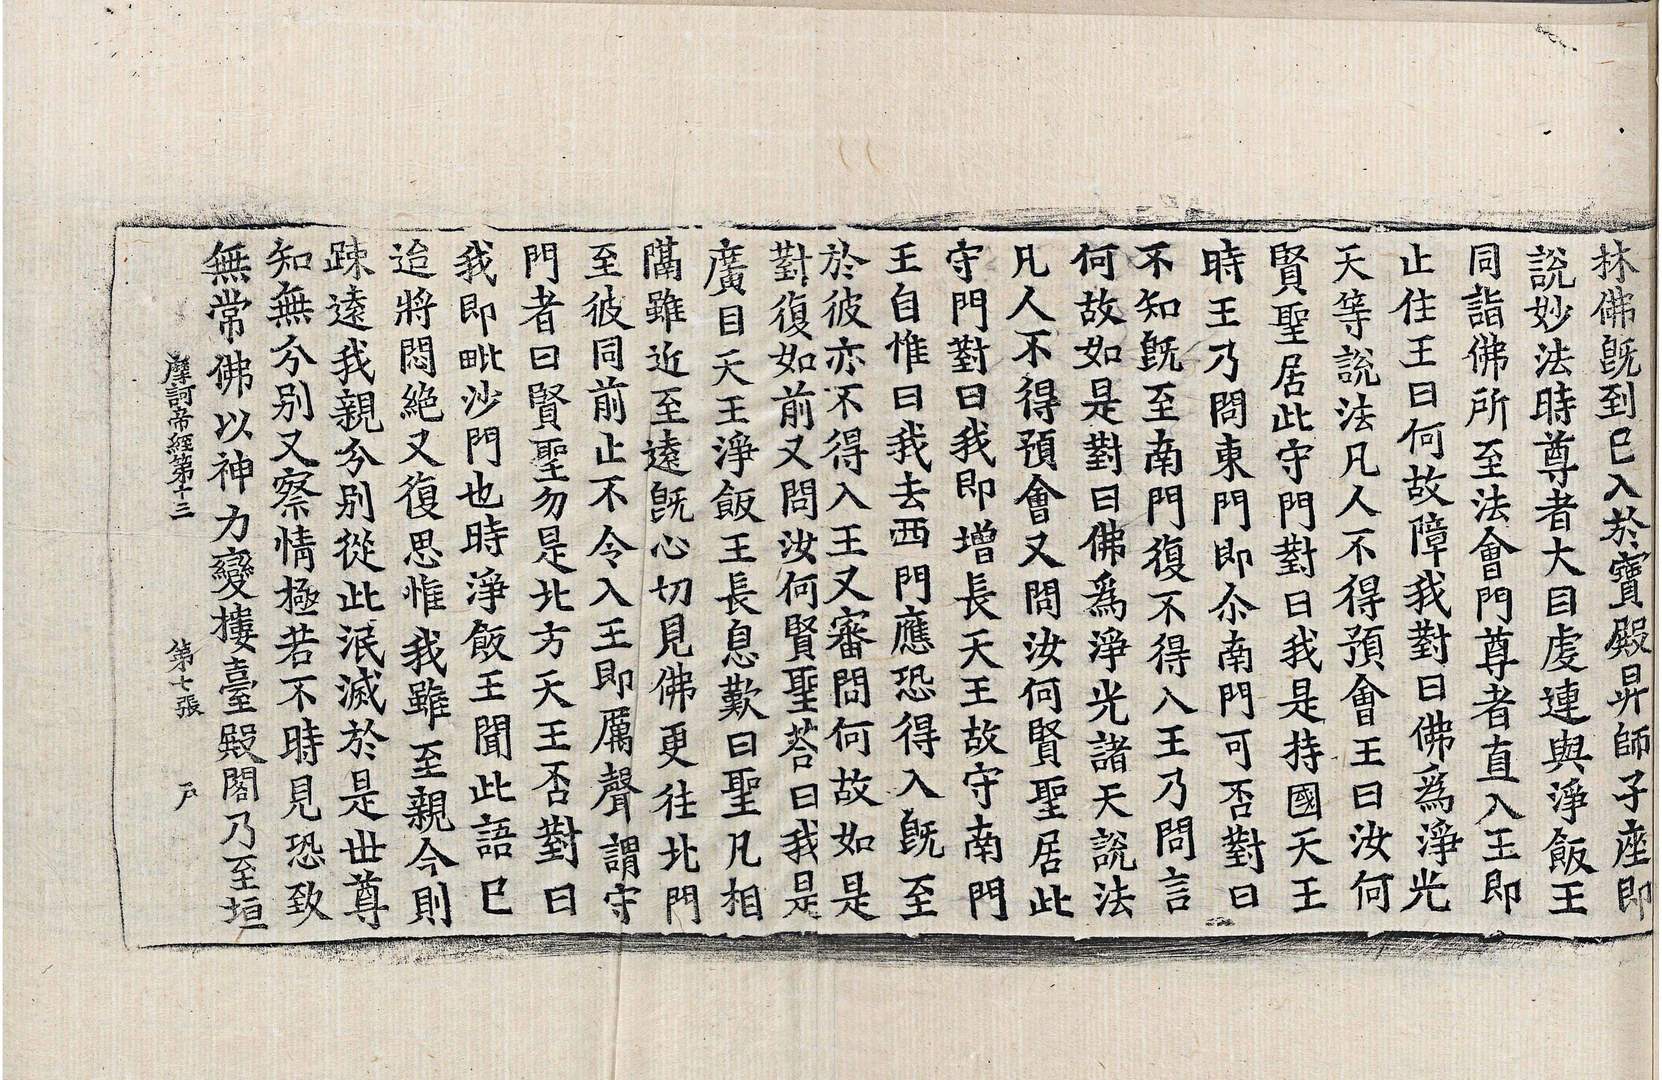 林佛旣到已入於寶殿昇師子座即
說妙法時尊者大目虔連與淨飯王
同詣佛所至法會門尊者直入王即
止住王曰何故障我對曰佛爲淨光
天等說法凡人不得預會王曰汝何
賢聖居此守門對曰我是持國天王
時王乃問東門即尒南門可否對曰
不知旣至南門復不得入王乃問言
何故如是對曰佛爲淨光諸天說法
凡人不得預會又問汝何賢聖居此
守門對曰我即增長天王故守南門
王自惟曰我去西門應恐得入旣至
於彼亦不得入王又審問何故如是
對復如前又問汝何賢聖荅曰我是
廣目天王淨飯王長息歎曰聖凡相
隔雖近至遠旣心切見佛更往北門
至彼同前止不令入王即厲聲謂守
門者曰賢聖勿是北方天王否對曰
我即毗沙門也時淨飯王聞此語已
迨將悶絕又復思惟我雖至親今則
踈遠我親分別從此泯滅於是世尊
知無分別又察情極若不時見恐致
無常佛以神力變樓臺殿閣乃至垣
摩訶帝經第十三 第七張 戶